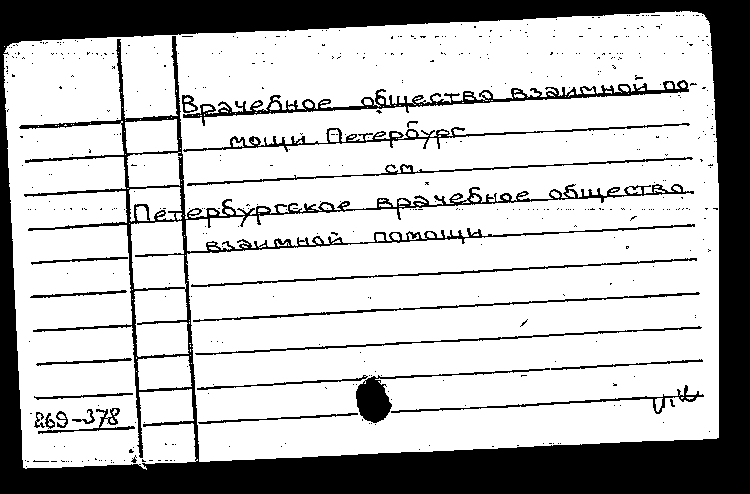 Врачебное общество взаимной по-
мощи. Петербург
см.
Петербургское врачебное общество
взаимной помощи.
869-378